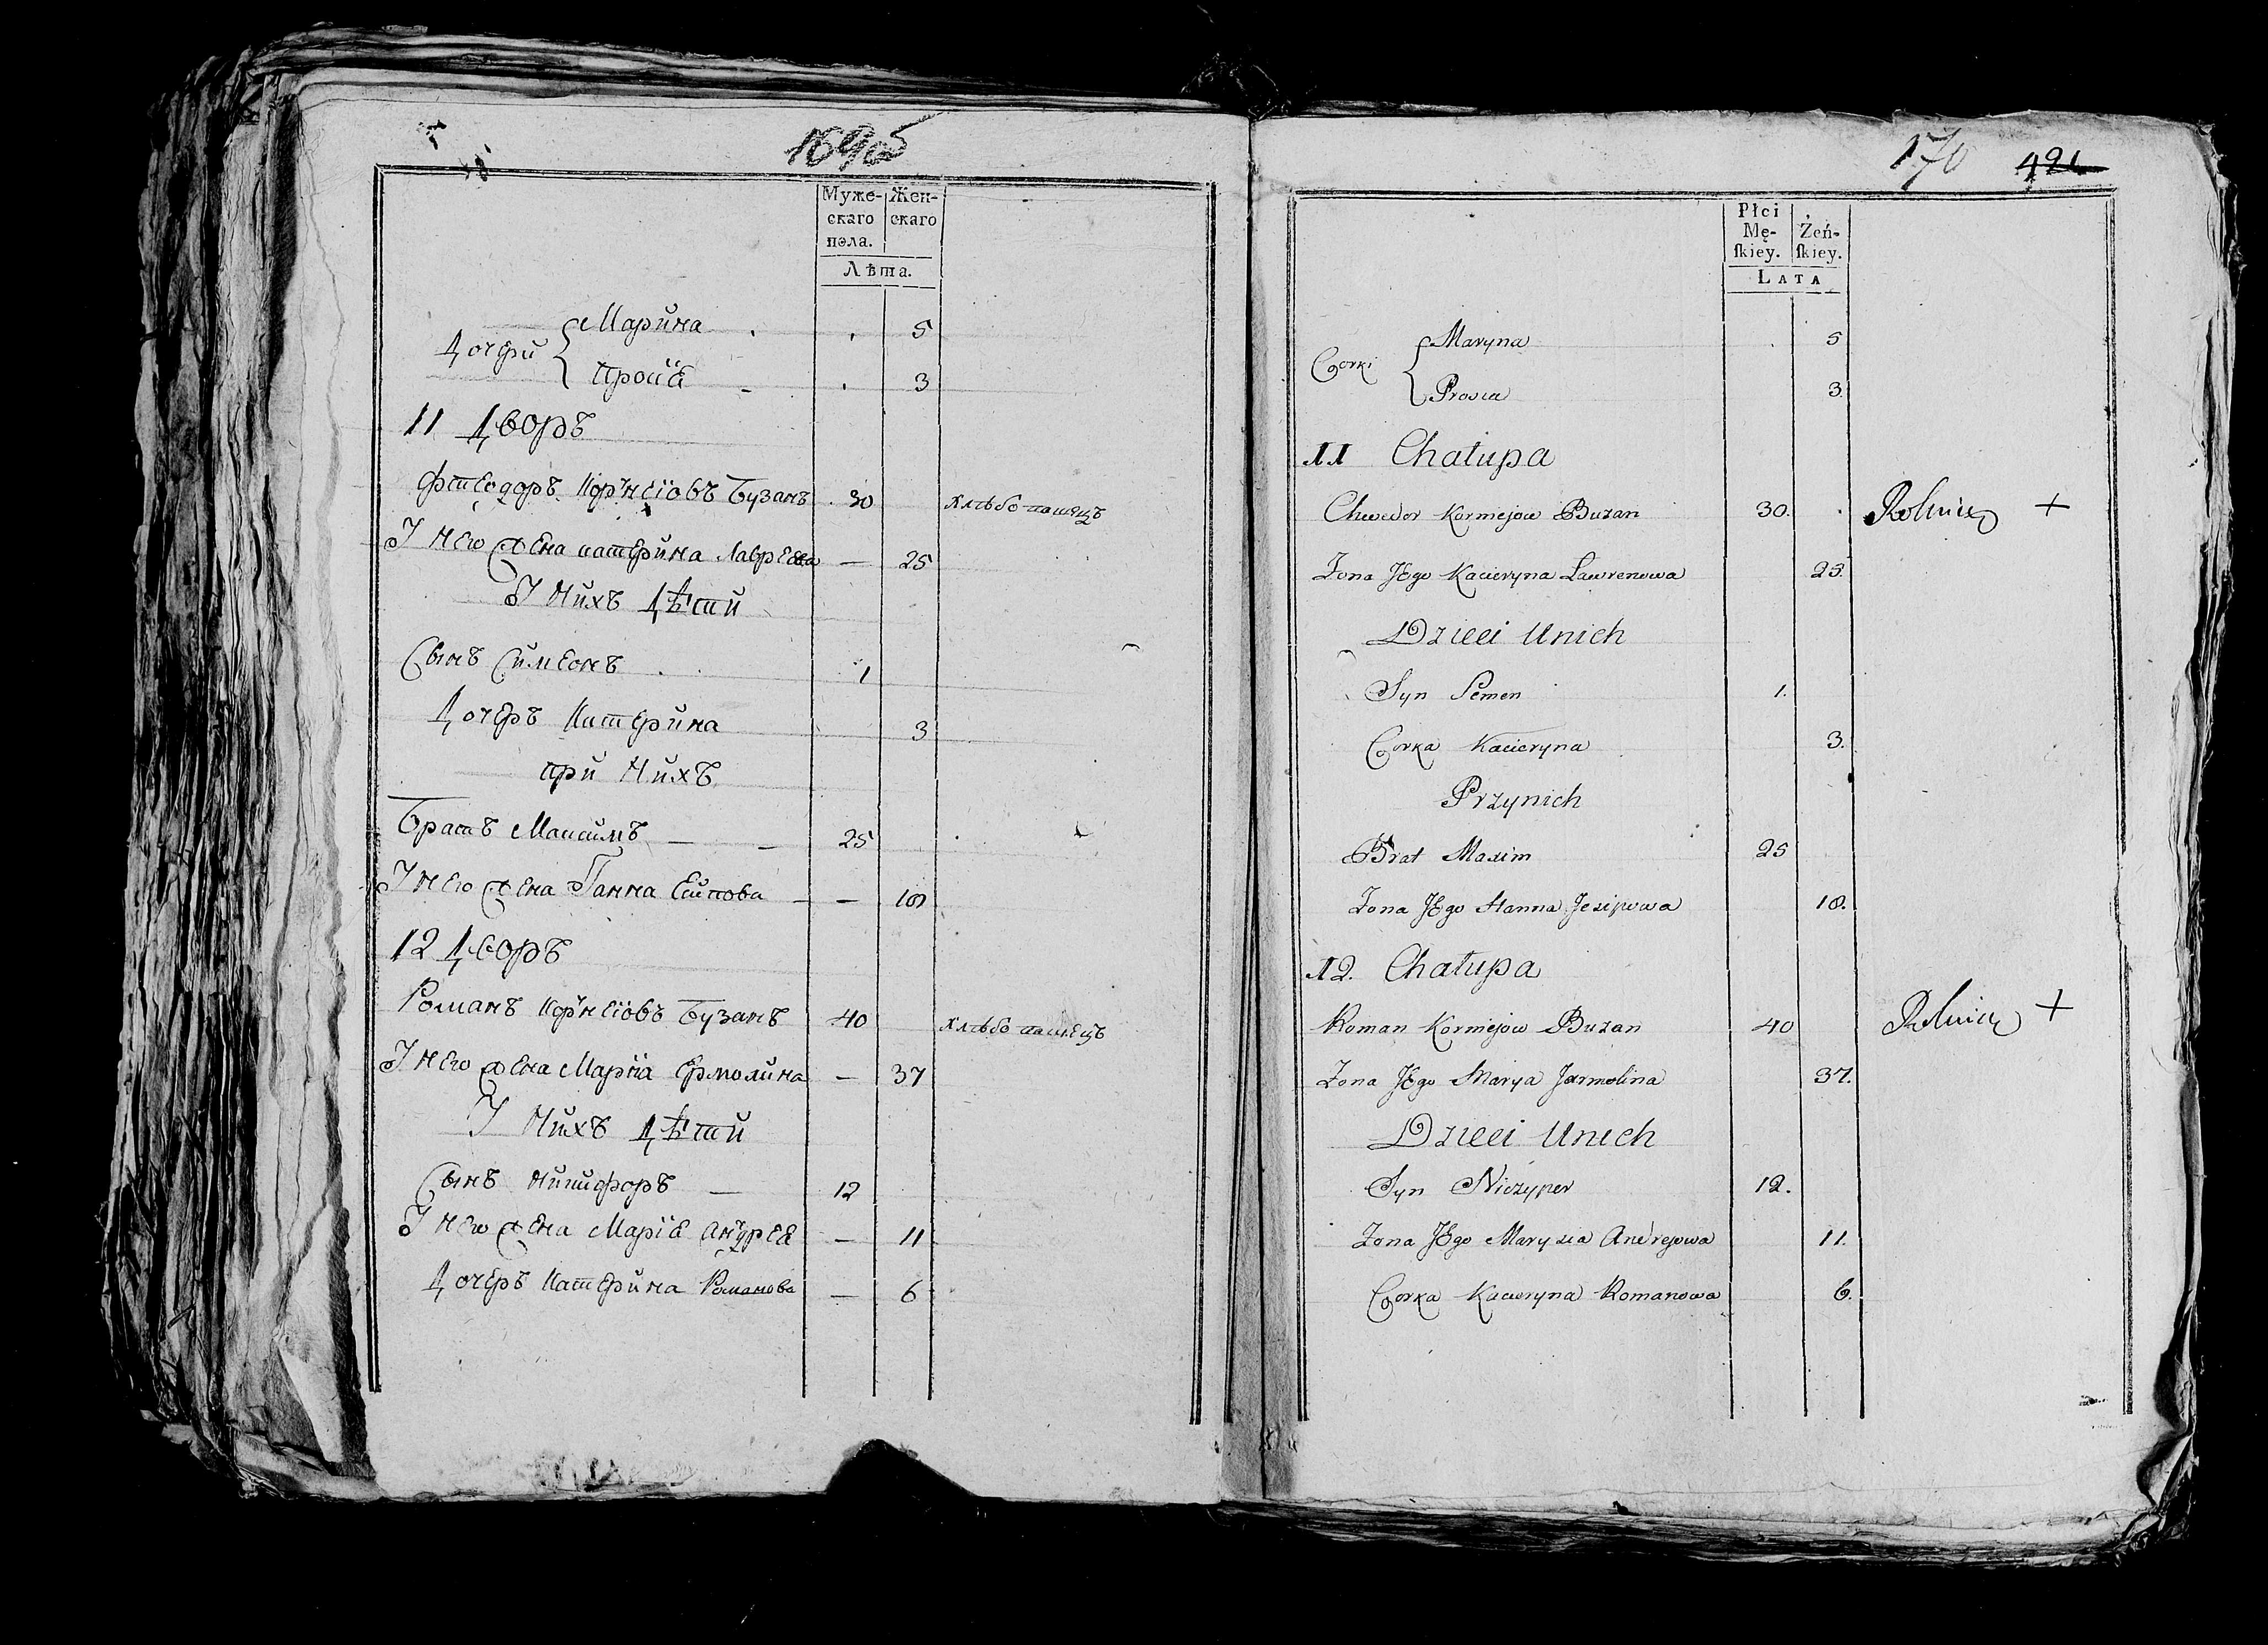 169об
Муже-
скаго
пола.
Жен-
скаго
Лѣта.
Дочери
Марина 5
Прося 3
11 Дворъ
Фтеодоръ Корнеіовъ Бузанъ 30 хлѣбопашецъ
У него жена катерина Лаврева — 25
У нихъ дѣти
Сынъ Симеонъ 1
Дочеръ Катерина 3
при нихъ
Братъ Максимъ — 25
У него жена Ганна Есипова — 18
12 Дворъ
Романъ Корнеіовъ Бузанъ 40 хлѣбопашецъ
У него жена Маріа Ермолина — 37
У нихъ дѣти
Сынъ Никифоръ — 12
У него жена Маріа андрея — 11
Дочеръ Катерина Романова — 6
170 421
Płci
Mę-
skiey.
Żeń-
skiey.
LATA
Corki
Maryna 5
Prosia 3.
11 Chałupa
Chwedor Kormejow Buzan 30. Rolniczy +
Zona JEgo Kacieryna Lawrenowa 25.
Dzieci Unich
Syn Semen 1.
Corka Kacieryna 3.
Przynich
Brat Maxim 25
Zona JEgo Hanna Jezipowa 18.
12. Chałupa
Roman Kormejow Buzan 40 Rolniczy +
Zona JEgo Marya Jarmolina 37.
Dzieci Unich
Syn Niczyper 12.
Zona JEgo Marysia Andrejowa 11.
Corka Kacieryna Romanowa 6.